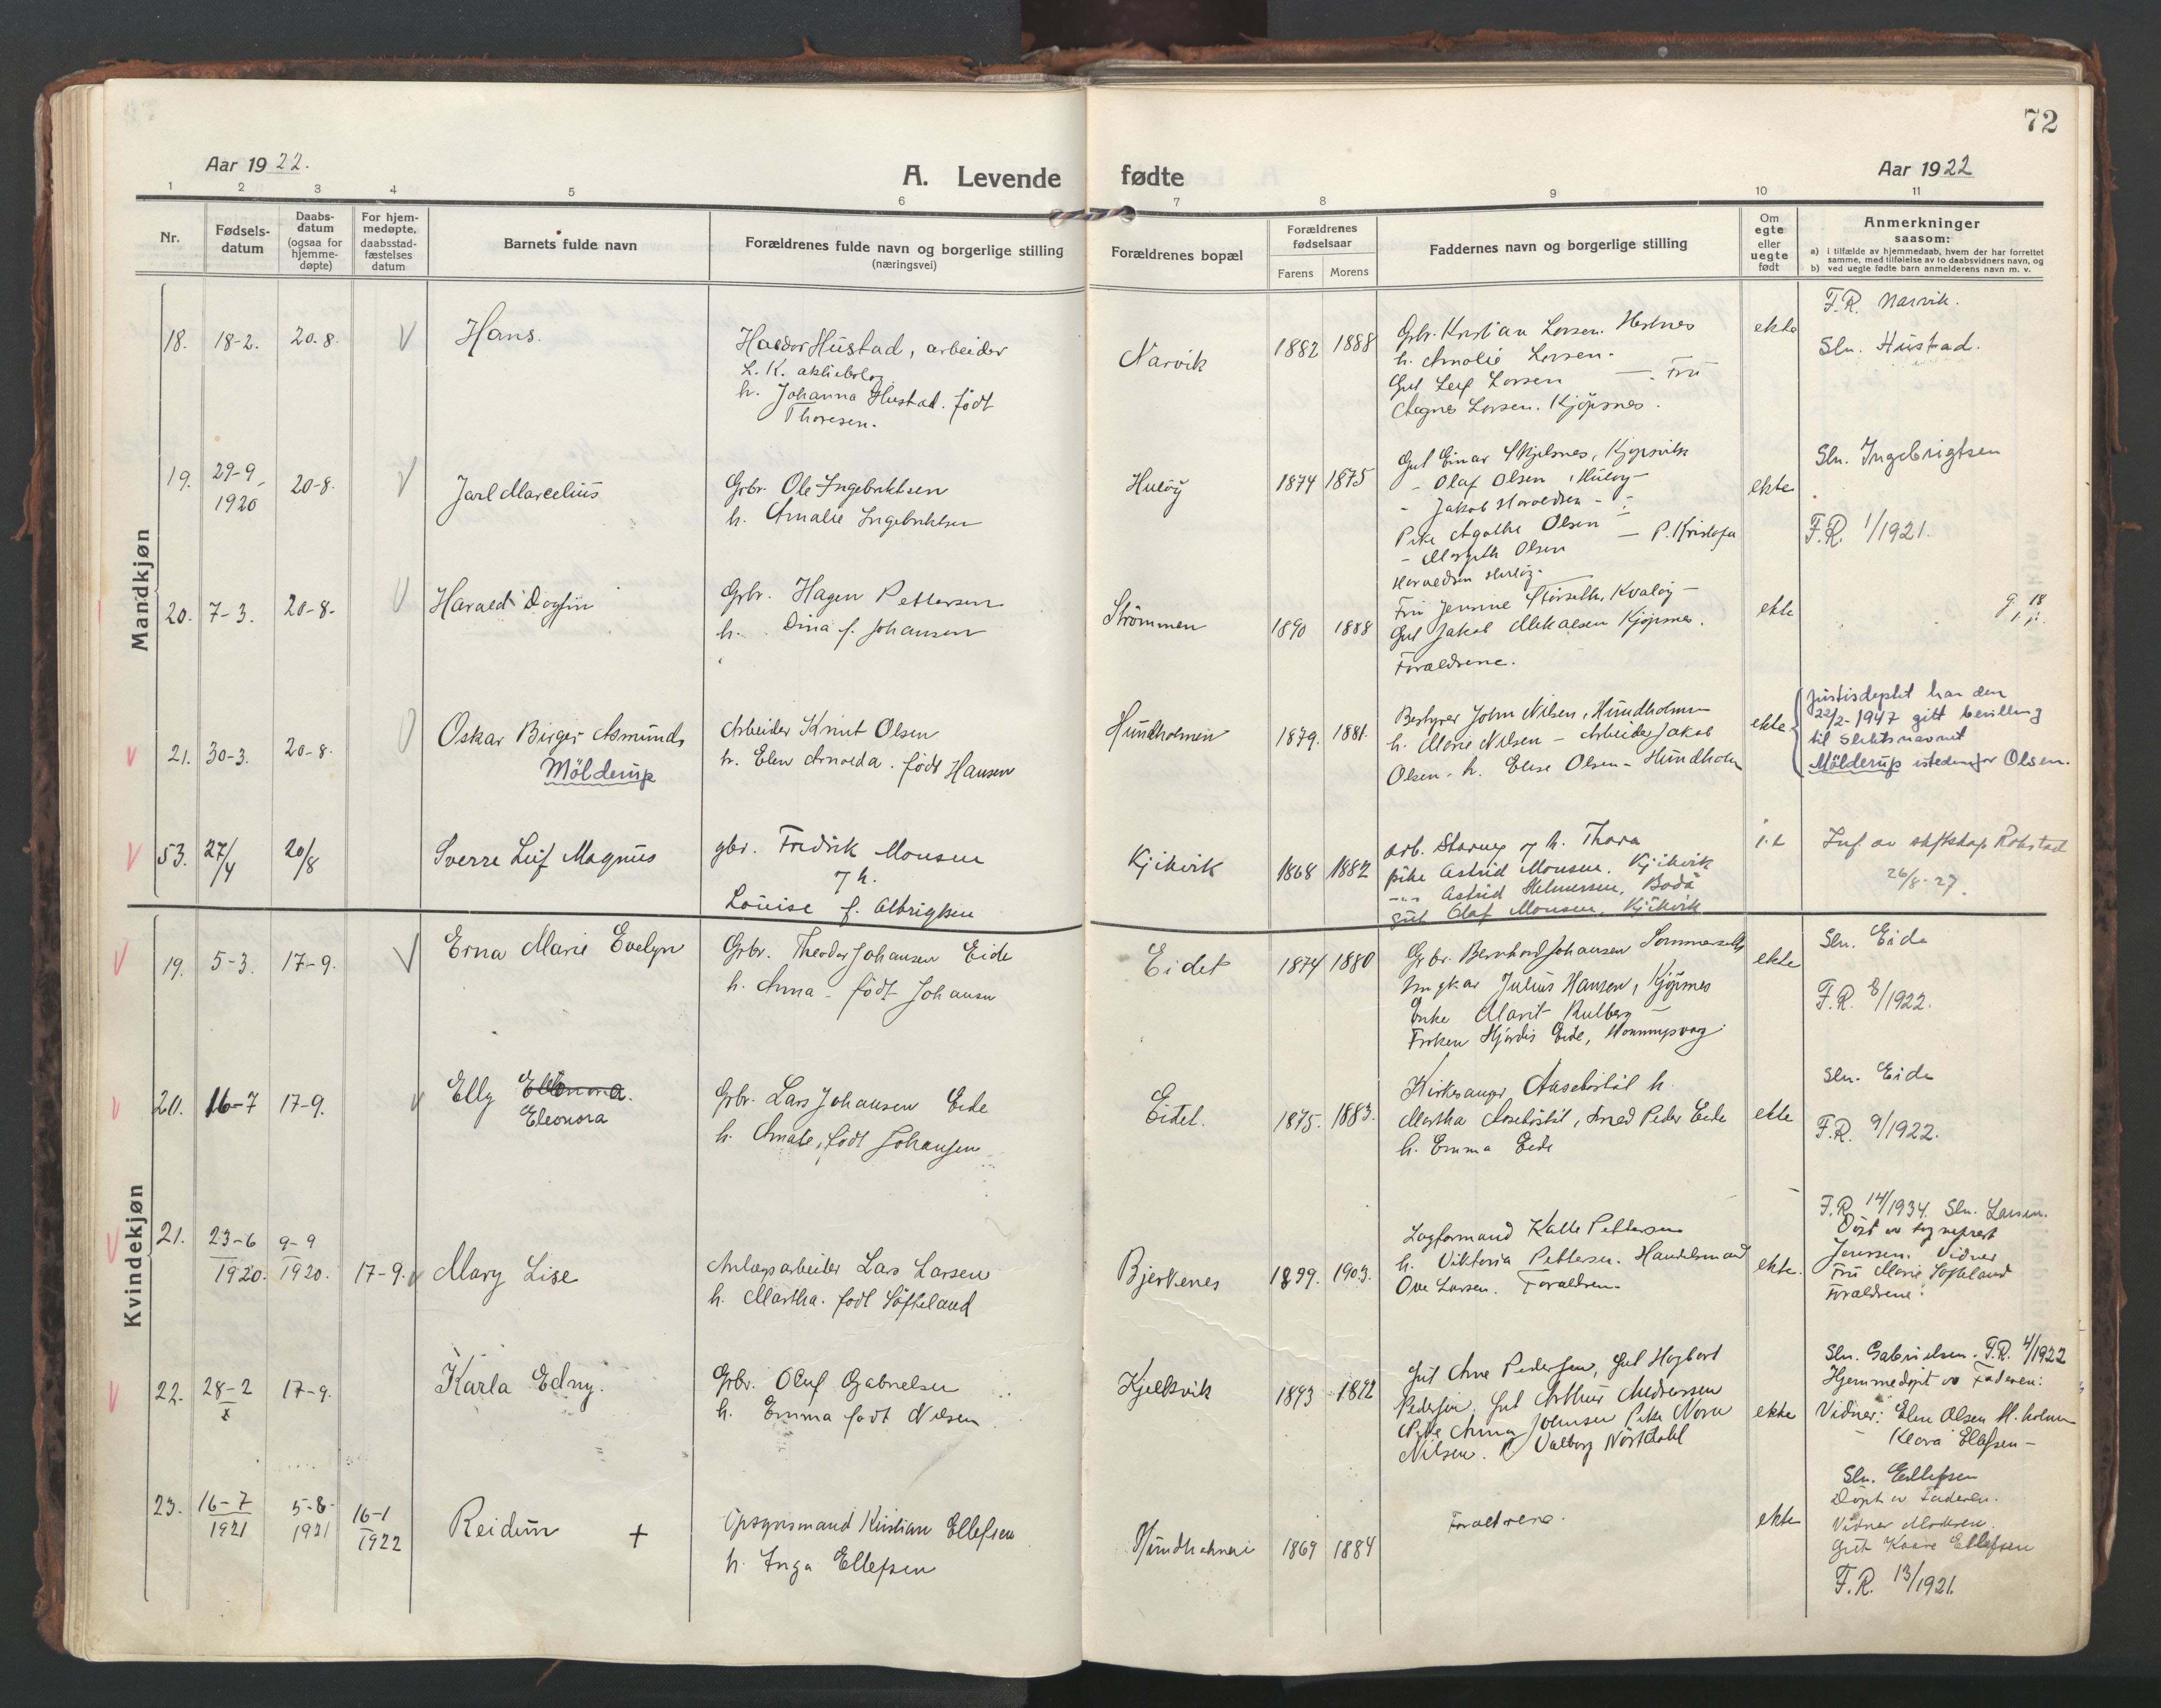 72
Aar 1922.
A. Levende
fødte
Aar 1922
1 2 3 4 5 6 7 8 9 10 11
Nr.
Fødsels-
datum
Daabs-
datum
(ogsaa for
hjemme-
døpte)
For hjem-
medøpte,
daabsstad-
fæstelses
datum
Barnets fulde navn
Forældrenes fulde navn og borgerlige stilling
(næringsvei)
Forældrenes bopæl
Forældrenes
fødselsaar
Farens
Morens
Faddernes navn og borgerlige stilling
Om
egte
eller
uegte
født
Anmerkninger
saasom:
a) i tilfælde av hjemmedaab, hvem der har forrettet
samme, med tilføielse av to daabsvidners navn, og
b) ved uegte fødte barn anmelderens navn m. v.
Mandkjøn
18. 18-2. 20.8. V Hans.
Haldor Hustad, arbeider
L. K. aktiebolag
h. Johanna Hustad. født
Thoresen.
Narvik
1882 1888
Grbr. Kristian Larsen. Hestnes
h. Amalie Larsen.
Gut Leif Larsen — . Fru
Agnes Larsen. Kjöpsnes.
ekte
F.R. Narvik.
Sln. Hustad.
19. 29-9
1920
20-8. V Jarl Marcelius
Grbr. Ole Ingebriktsen
h. Amalie Ingebriktsen
Hulöy
1874 1875
Gut Einar Skjelsnes, Kjöpsvik
- Olaf Olsen, Hulöy-
- Jakob Haraldsen -
Pike Agathe Olsen — P. Kristofa
- Margith Olsen
Haraldsen Hulöy.
ekte
Sln. Ingebrigtsen
F.R. 1/1921.
20. 7-3. 20-8- V Harald Dagfin
Grbr. Hagen Pettersen
h. Dina f. Johansen
Strömmen
1890 1888
Fru Jensine Storselth, Kvalöy -
Gut Jakob Mikalsen Kjöpsnes.
Foraldrene.
ekte
21. 30-3. 20-8. Oskar Birger Asmunds
Mölderup
Arbeider Knut Olsen
h. Elen Arnolda. født Hansen
Hundholmen
1879. 1881.
Bestyrer John Nilsen, Hundholmen
h. Marie Nilsen - Arbeider Jakob
Olsen - h. Elise Olsen - Hundholm
ekte
Justisdeptet har den
22/2-1947 gitt bevilling
til slektsnavnet
Mölderup istedenfor Olsen.
53. 27/4 20/8 Sverre Leif Magnus
gbr. Fredrik Monsen
og h.
Louise f. Albrigtsen
Kjikvik
1868 1882
arb. og h. Thora
pike Astrid Monsen. Kjikvik
-"- Astrid Helmersen, Bodö
gut Olaf Monsen, Kjikvik
Inf. av skifskap Rokstad
26/8-27.
Kvindekjøn
19. 5-3. 17-9. V Erna Marie Evelyn
Grbr. Theodor Johansen Eide
h. Anna - født Johansen
Eidet
1874 1880
Grbr. Bernhard Johansen Sommerseth
Ungkar Julius Hansen, Kjöpsnes
Enke Marit Kulberg -
Frøken Hjördis Eide,
ekte
Sln. Eide
F.R. 8/1922.
20. 16-7 17-9. V Elly Ellenora.
Eleonora
Grbr. Lars Johansen Eide
h. Amalie, født Johansen
Eidet.
1875. 1883.
Kirkesanger h.
Martha, Smed Peder Eide
h. Emma Eide
ekte
Sln. Eide
F.R. 9/1922.
21. 23-6
1920.
9-9
1920.
17-9. V Mary Lise
Anlægsarbeider Lars Larsen
h. Martha. født Söfteland
Bjerkenes
1899. 1903.
Lagformand Kalle Pettersen
h. Viktoria Pettersen. Handelsmand
Ove Larsen. Foraldrene.
ekte.
F.R. 14/1934. Sln. Larsen.
Döpt av sogneprest
Jenssen. Vidner
Fru Marie Söfteland
Foraldrene.
22. 28-2 17-9. Karla Edny.
Grbr. Oluf Gabrielsen
h. Emma født Nilsen
Kjelkvik
1893 1892
Gut Arne Pedersen, Gut Hagbart
Pedersen. Gut Arthur Andreassen
Pike Anna Johnsen Pike Nora
Nilsen. Valborg Nordahl
ekte
Sln. Gabrielsen. F.R. 4/1922
Hjemmedöpt av Faderen:
Vidner: Elen Olsen H.holmen
- Klara Ellefsen -
23. 16-7
1921
5-8-
1921
16-1
1922
Reidun +
Opsynsmand Kristian Ellefsen
h. Inga Ellefsen
Hundholmen
1869 1884
Foraldrene.
ekte
Sln. Ellefsen
Döpt av Faderen.
Vidner Moderen.
Gut Kaare Ellefsen
F.R. 13/1921.